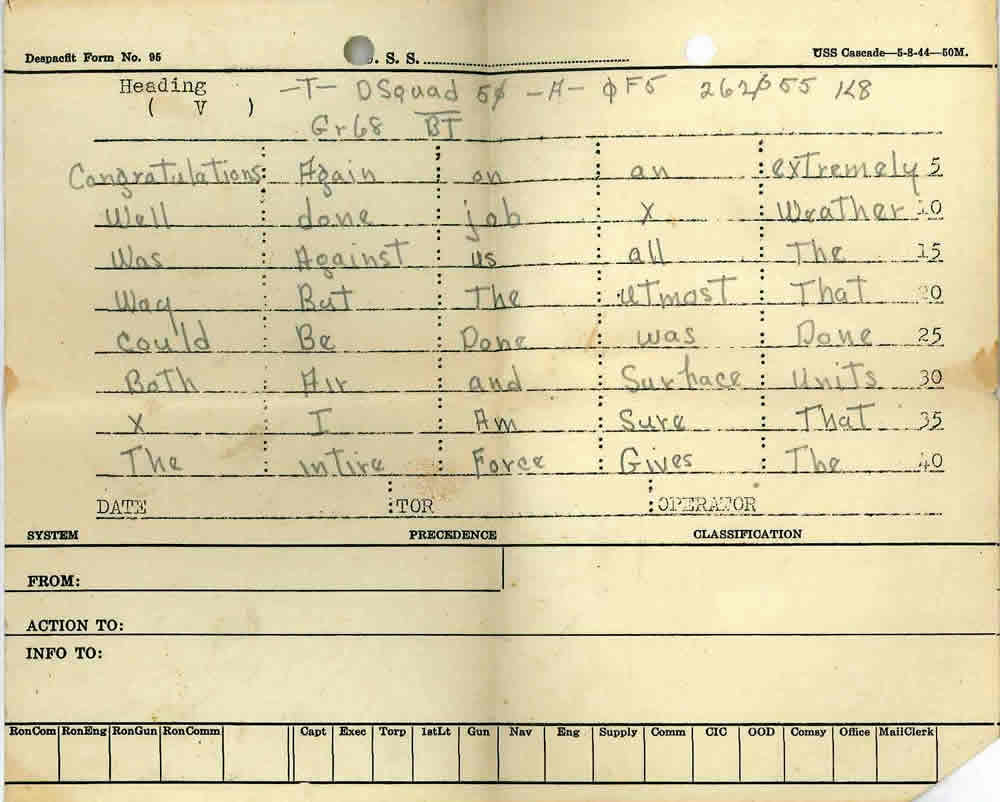 Despacfit Form No. 95 . S. S. USS Cascade—5-8-44—50M.
Heading —T— DSquad 5ø —A— ϕF5 K8
( V ) Gr68 BT
Congratulations Again on an extremely 5
Well done job x Weather 10
Was Against us all The 15
Way But The utmost That 20
Could Be Done was Done 25
Both Air and Surface Units 30
X I Am Sure That 35
The intire Force Gives The 40
DATE TOR OPERATOR
SYSTEM PRECEDENCE CLASSIFICATION
FROM:
ACTION TO:
INFO TO:
RonCom RonEng RonGun RonComm Capt Exec Torp 1stLt Gun Nav Eng Supply Comm CIC OOD Comsy Office MailClerk